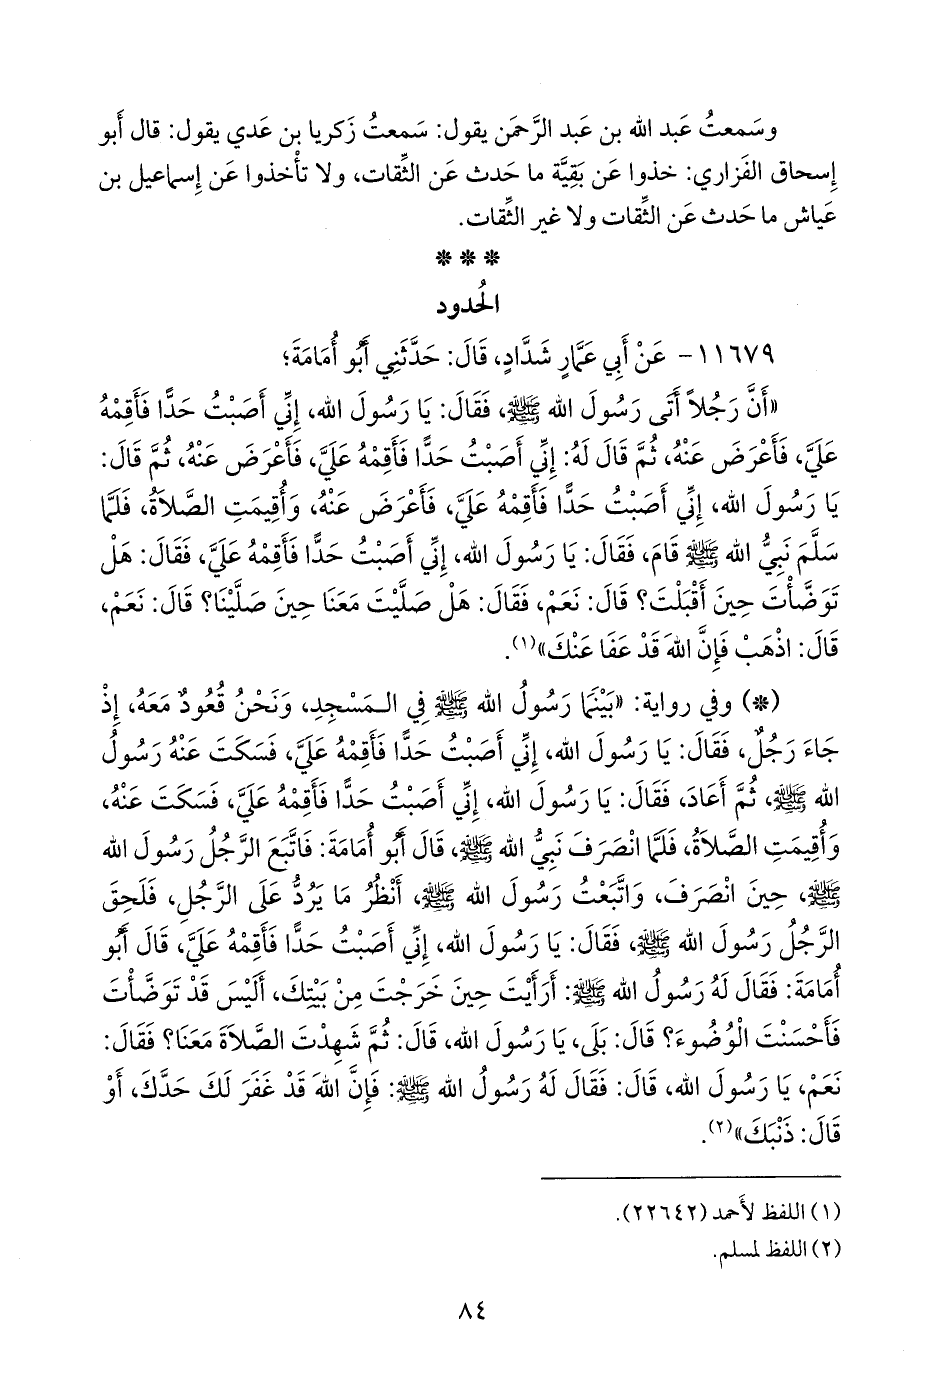 وسَمعتُ عَبد الله بن عَبد الرَّحمَن يقول: سَمعتُ زَكريا بن عَدي يقول: قال أَبو
إِسحاق الفَزاري: خذوا عَن بَقِيَّة ما حَدث عَن الثِّقات، ولا تأْخذوا عَن إِسماعيل بن
عَياش ما حَدث عَن الثِّقات ولا غير الثِّقات.
* * *
الحُدود
١١٦٧٩- عَنْ أَبِي عَمَّارٍ شَدَّادٍ، قَالَ: حَدَّثَنِي أَبُو أُمَامَةَ؛
«أَنَّ رَجُلاً أَتَى رَسُولَ الله ﷺ، فَقَالَ: يَا رَسُولَ الله، إِنِّي أَصَبْتُ حَدًّا فَأَقِمْهُ
عَلَيَّ، فَأَعْرَضَ عَنْهُ، ثُمَّ قَالَ لَهُ: إِنِّي أَصَبْتُ حَدًّا فَأَقِمْهُ عَلَيَّ، فَأَعْرَضَ عَنْهُ، ثُمَّ قَالَ:
يَا رَسُولَ الله، إِنِّي أَصَبْتُ حَدًّا فَأَقِمْهُ عَلَيَّ، فَأَعْرَضَ عَنْهُ، وَأُقِيمَتِ الصَّلاَةُ، فَلَمَّا
سَلَّمَ نَبِيُّ الله ﷺ قَامَ، فَقَالَ: يَا رَسُولَ الله، إِنِّي أَصَبْتُ حَدًّا فَأَقِمْهُ عَلَيَّ، فَقَالَ: هَلْ
تَوَضَّأْتَ حِينَ أَقْبَلْتَ؟ قَالَ: نَعَمْ، فَقَالَ: هَلْ صَلَّيْتَ مَعَنَا حِينَ صَلَّيْنَا؟ قَالَ: نَعَمْ،
قَالَ: اذْهَبْ فَإِنَّ اللهَ قَدْ عَفَا عَنْكَ»(١).
(*) وفي رواية: «بَيْنَمَا رَسُولُ الله ﷺ فِي الـمَسْجِدِ، وَنَحْنُ قُعُودٌ مَعَهُ، إِذْ
جَاءَ رَجُلٌ، فَقَالَ: يَا رَسُولَ الله، إِنِّي أَصَبْتُ حَدًّا فَأَقِمْهُ عَلَيَّ، فَسَكَتَ عَنْهُ رَسُولُ
الله ﷺ، ثُمَّ أَعَادَ، فَقَالَ: يَا رَسُولَ الله، إِنِّي أَصَبْتُ حَدًّا فَأَقِمْهُ عَلَيَّ، فَسَكَتَ عَنْهُ،
وَأُقِيمَتِ الصَّلاَةُ، فَلَمَّا انْصَرَفَ نَبِيُّ الله ﷺ، قَالَ أَبُو أُمَامَةَ: فَاتَّبَعَ الرَّجُلُ رَسُولَ الله
ﷺ، حِينَ انْصَرَفَ، وَاتَّبَعْتُ رَسُولَ الله ﷺ، أَنْظُرُ مَا يَرُدُّ عَلَى الرَّجُلِ، فَلَحِقَ
الرَّجُلُ رَسُولَ الله ﷺ، فَقَالَ: يَا رَسُولَ الله، إِنِّي أَصَبْتُ حَدًّا فَأَقِمْهُ عَلَيَّ، قَالَ أَبُو
أُمَامَةَ: فَقَالَ لَهُ رَسُولُ الله ﷺ: أَرَأَيْتَ حِينَ خَرَجْتَ مِنْ بَيْتِكَ، أَلَيْسَ قَدْ تَوَضَّأْتَ
فَأَحْسَنْتَ الْوُضُوءَ؟ قَالَ: بَلَى، يَا رَسُولَ الله، قَالَ: ثُمَّ شَهِدْتَ الصَّلاَةَ مَعَنَا؟ فَقَالَ:
نَعَمْ، يَا رَسُولَ الله، قَالَ: فَقَالَ لَهُ رَسُولُ الله ﷺ: فَإِنَّ اللهَ قَدْ غَفَرَ لَكَ حَدَّكَ، أَوْ
قَالَ: ذَنْبَكَ»(٢).
(١) اللفظ لأَحمد (٢٢٦٤٢).
(٢) اللفظ لمسلم.
٨٤